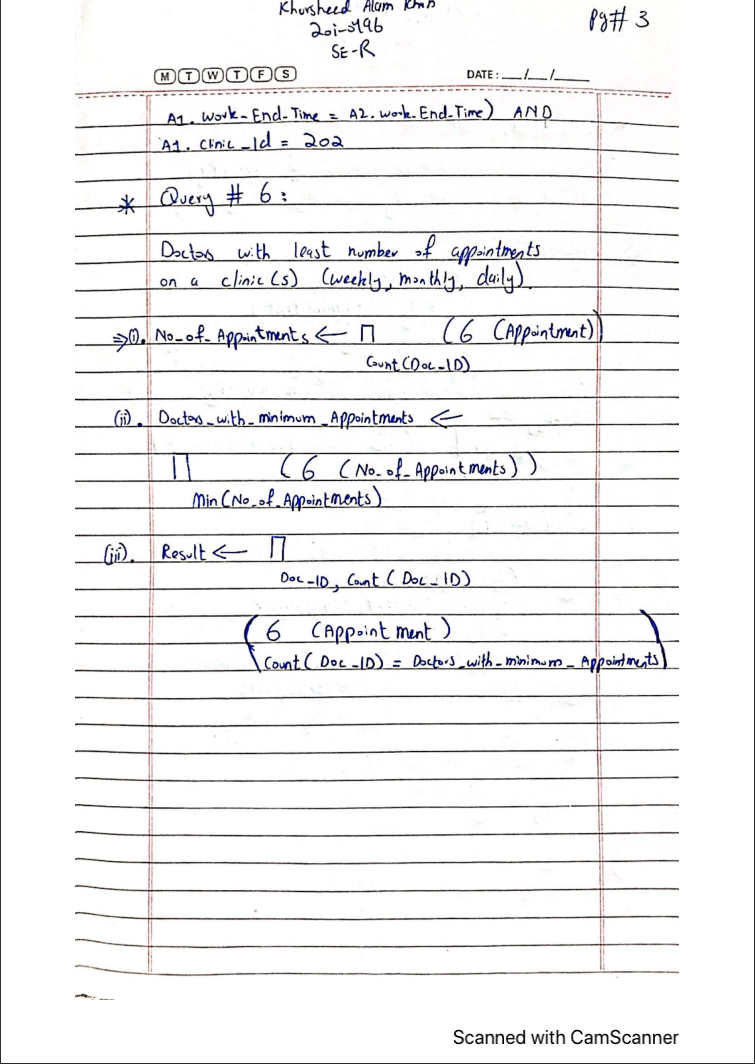 Khursheed Alam Khan
20i-3196
SE-R
Pg# 3
M T W T F S
DATE: __/__/____
A1. Work-End-Time = A2. work-End-Time) AND
A1. Clinic_Id = 202
* Query # 6:
Doctors with least number of appointments
on a clinic(s) (weekly, monthly, daily).
⇒(i). No_of_Appointments ← Π (6 (Appointment))
Count(Doc_ID)
(ii). Doctors_with_minimum_Appointments ←
Π (6 (No_of_Appointments))
Min(No_of_Appointments)
(iii). Result ← Π
Doc_ID, Count (Doc_ID)
(6 (Appointment)
Count(Doc_ID) = Doctors_with_minimum_Appointments)
Scanned with CamScanner